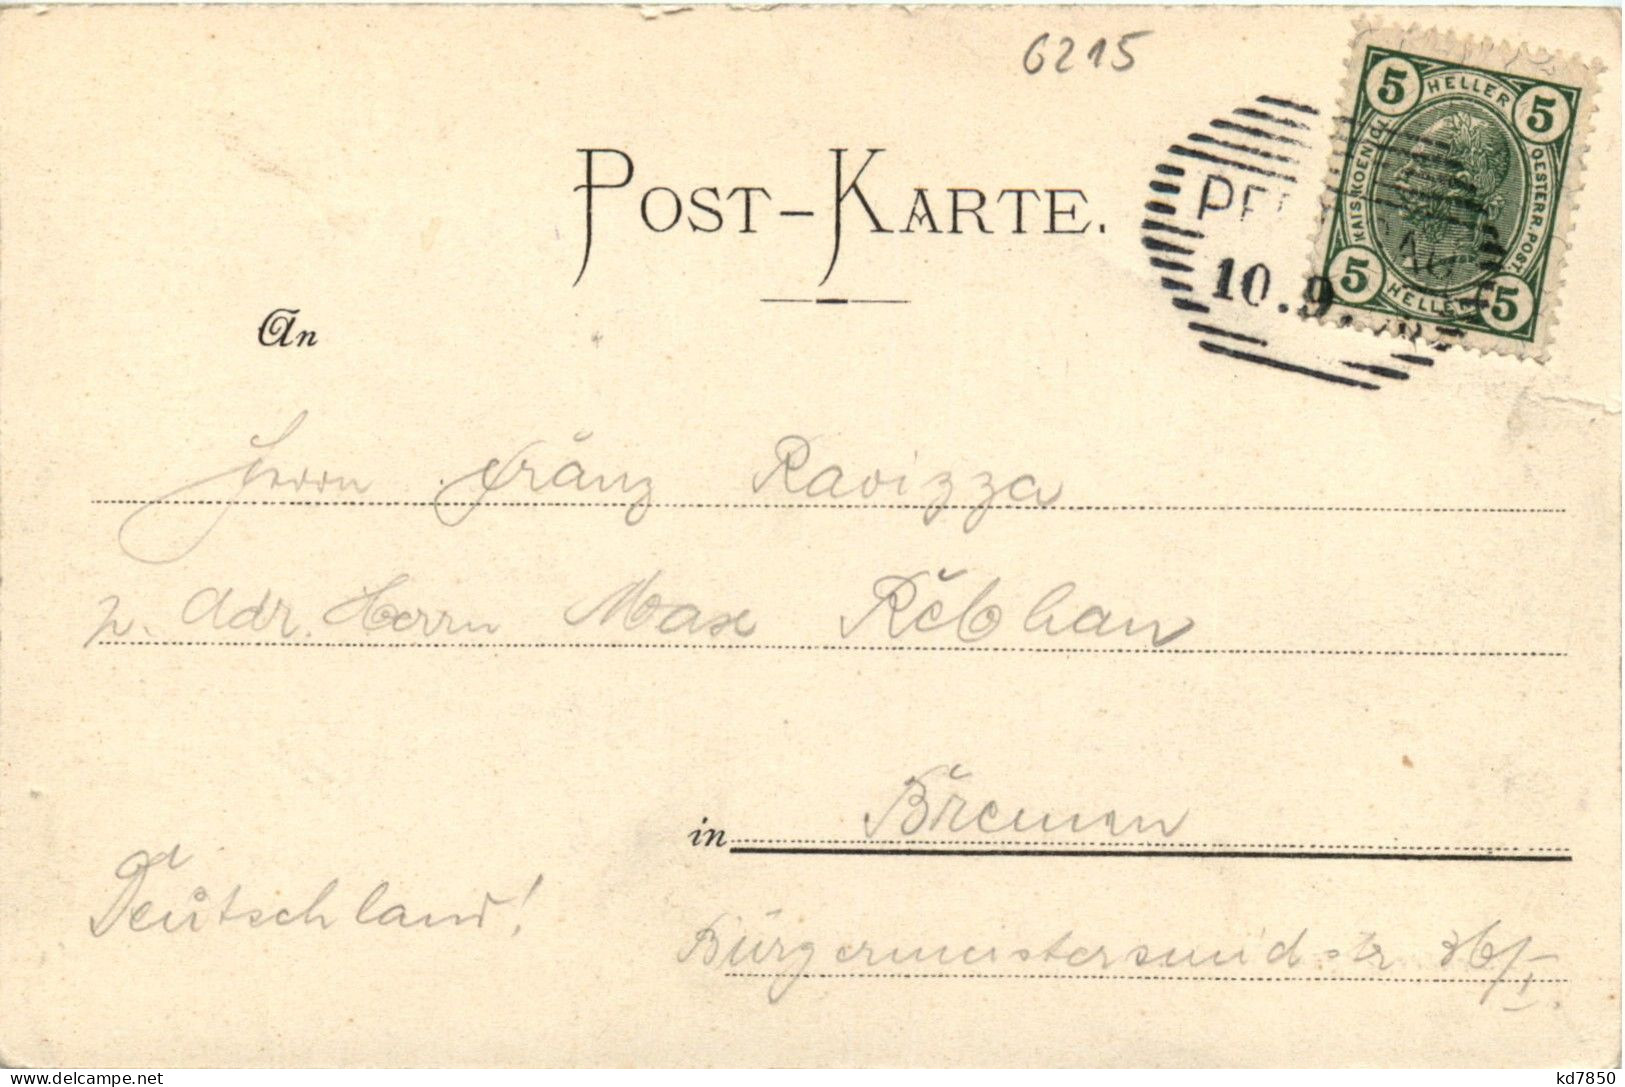 6215
5 HELLER 5
KAIS. KOENIGL. OESTERR. POST.
5 HELLER 5
10.9.
POST-KARTE.
An
Herrn Franz Ravizza
p. Adr. Herrn Max Rebhan
in Bremen
Deutschland!
Bürgermeistersmidstr 36/I.
delcampe.net
kd7850